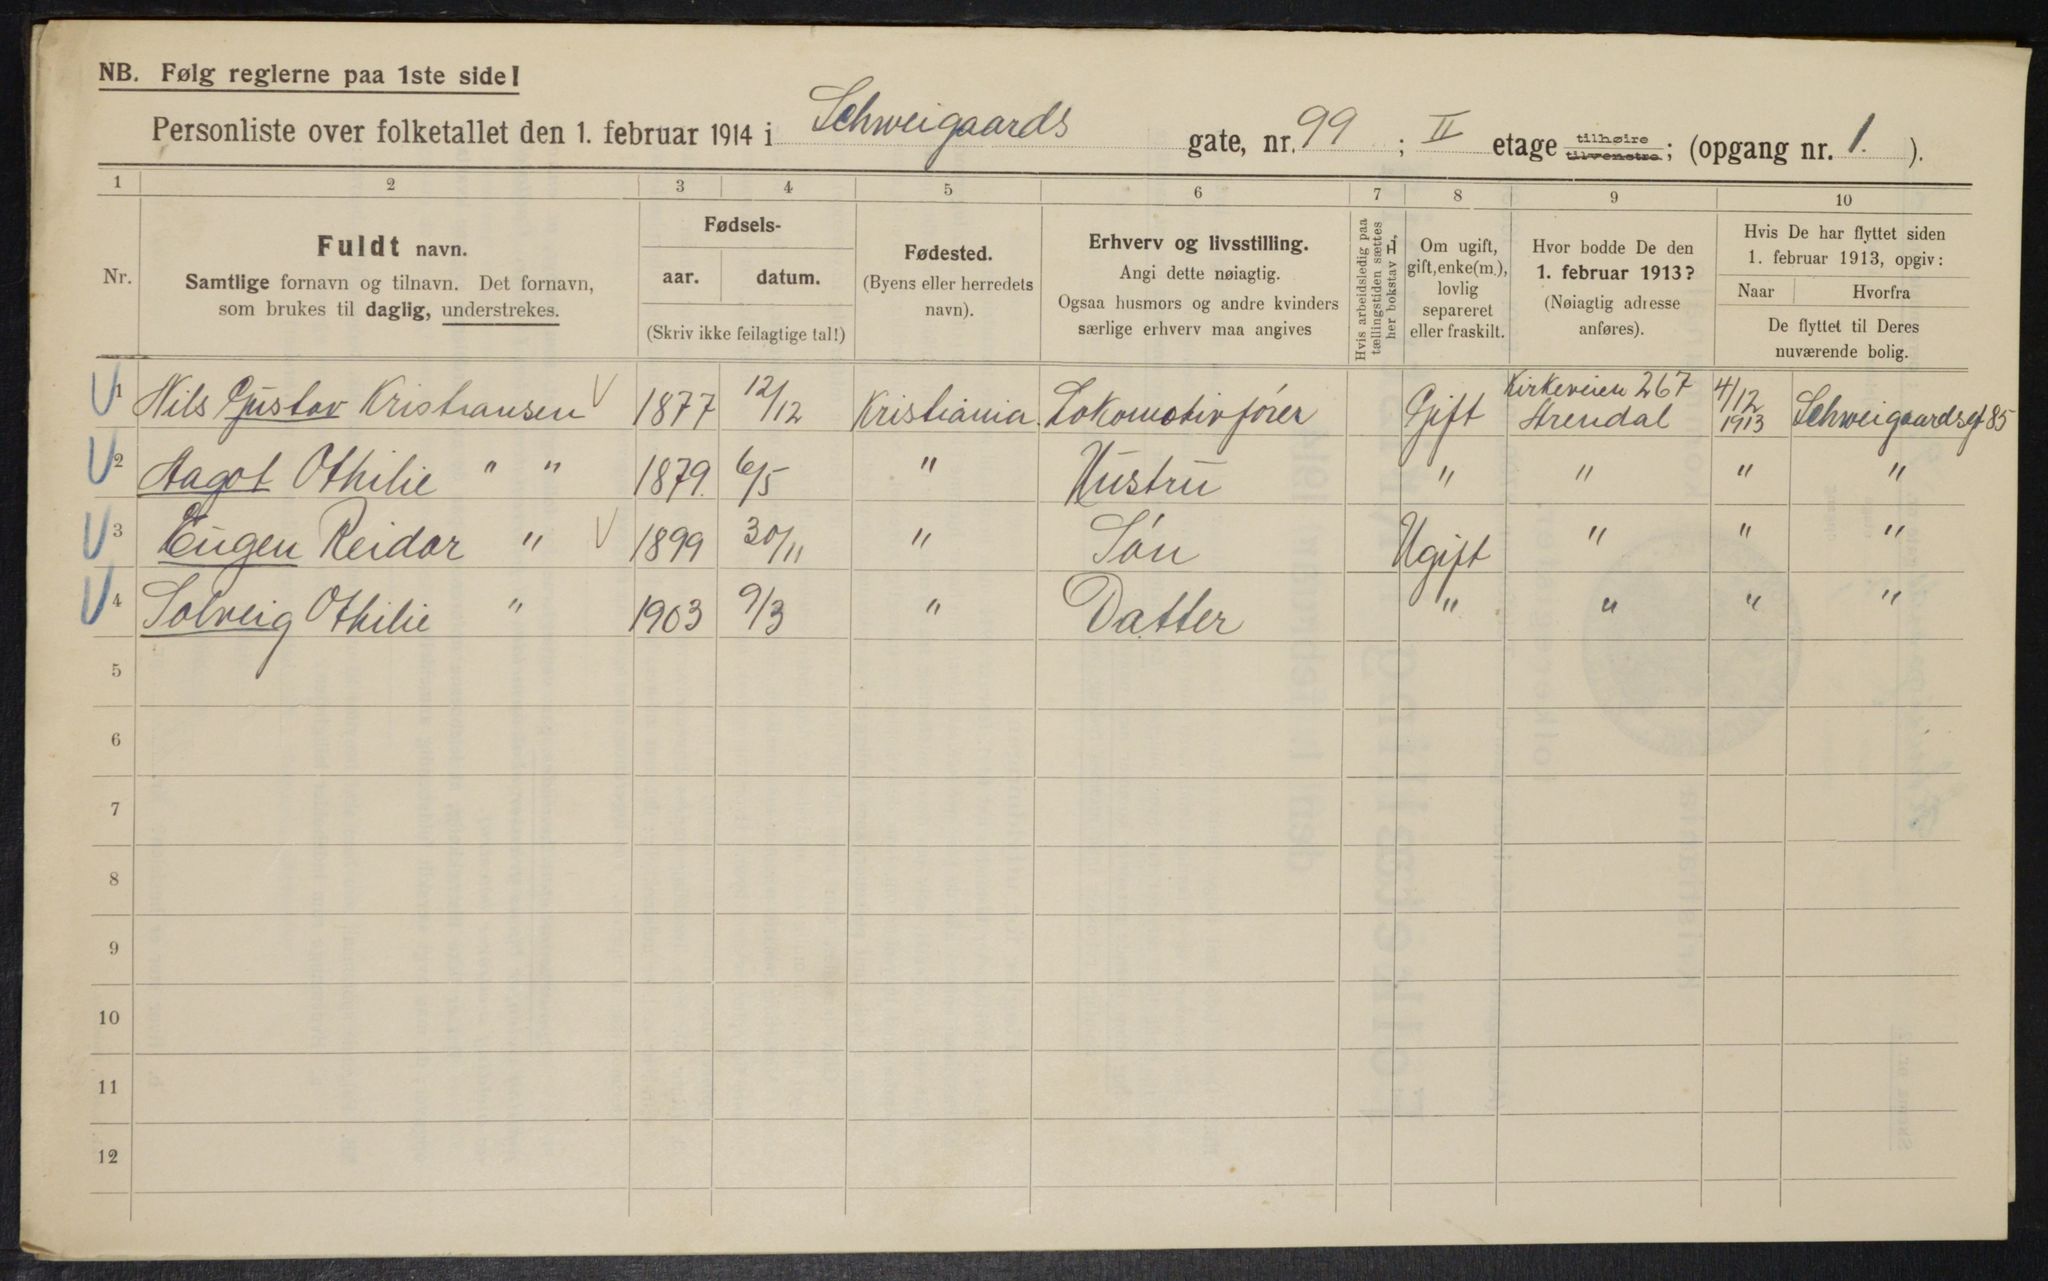 NB. Følg reglerne paa 1ste side!
Personliste over folketallet den 1. februar 1914 i Schweigaards gate, nr. 99 ; II etage tilhøire tilvenstre; (opgang nr. 1. ).
1 2 3 4 5 6 7 8 9 10
Nr.
Fuldt navn.
Samtlige fornavn og tilnavn. Det fornavn,
som brukes til daglig, understrekes.
Fødsels-
aar. datum.
(Skriv ikke feilagtige tal!)
Fødested.
(Byens eller herredets
navn).
Erhverv og livsstilling.
Angi dette nøiagtig.
Ogsaa husmors og andre kvinders
særlige erhverv maa angives
Hvis arbeidsledig paa
tællingstiden sættes
her bokstav L,
Om ugift,
gift, enke(m.),
lovlig
separeret
eller fraskilt.
Hvor bodde De den
1. februar 1913?
(Nøiagtig adresse
anføres).
Hvis De har flyttet siden
1. februar 1913, opgiv:
Naar Hvorfra
De flyttet til Deres
nuværende bolig.
1 Nils Gustav Kristiansen 1877 12/12 Kristiania. Lokomotivfører Gift Kirkeveien 267 Arendal 4/12 1913 Schweigaardsgt 85
2 Aagot Othilie " " 1879. 6/5 " Hustru " " " "
3 Eugen Reidar " 1899 30/11 " Søn Ugift " " "
4 Solveig Othilie " 1903 9/3 " Datter " " " "
5
6
7
8
9
10
11
12